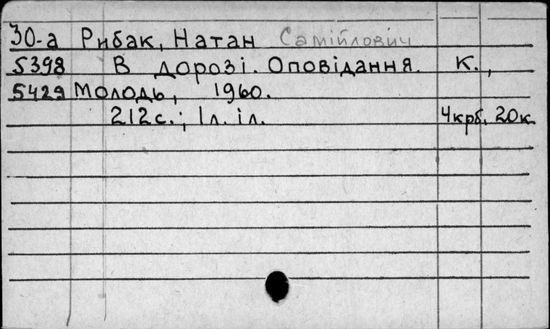 30-а Рибак, Натан Самійлович
5398 В дорозі. Оповідання. К.,
5429 Молодь, 1960.
212с.; 1л. іл. 4крб. 20к